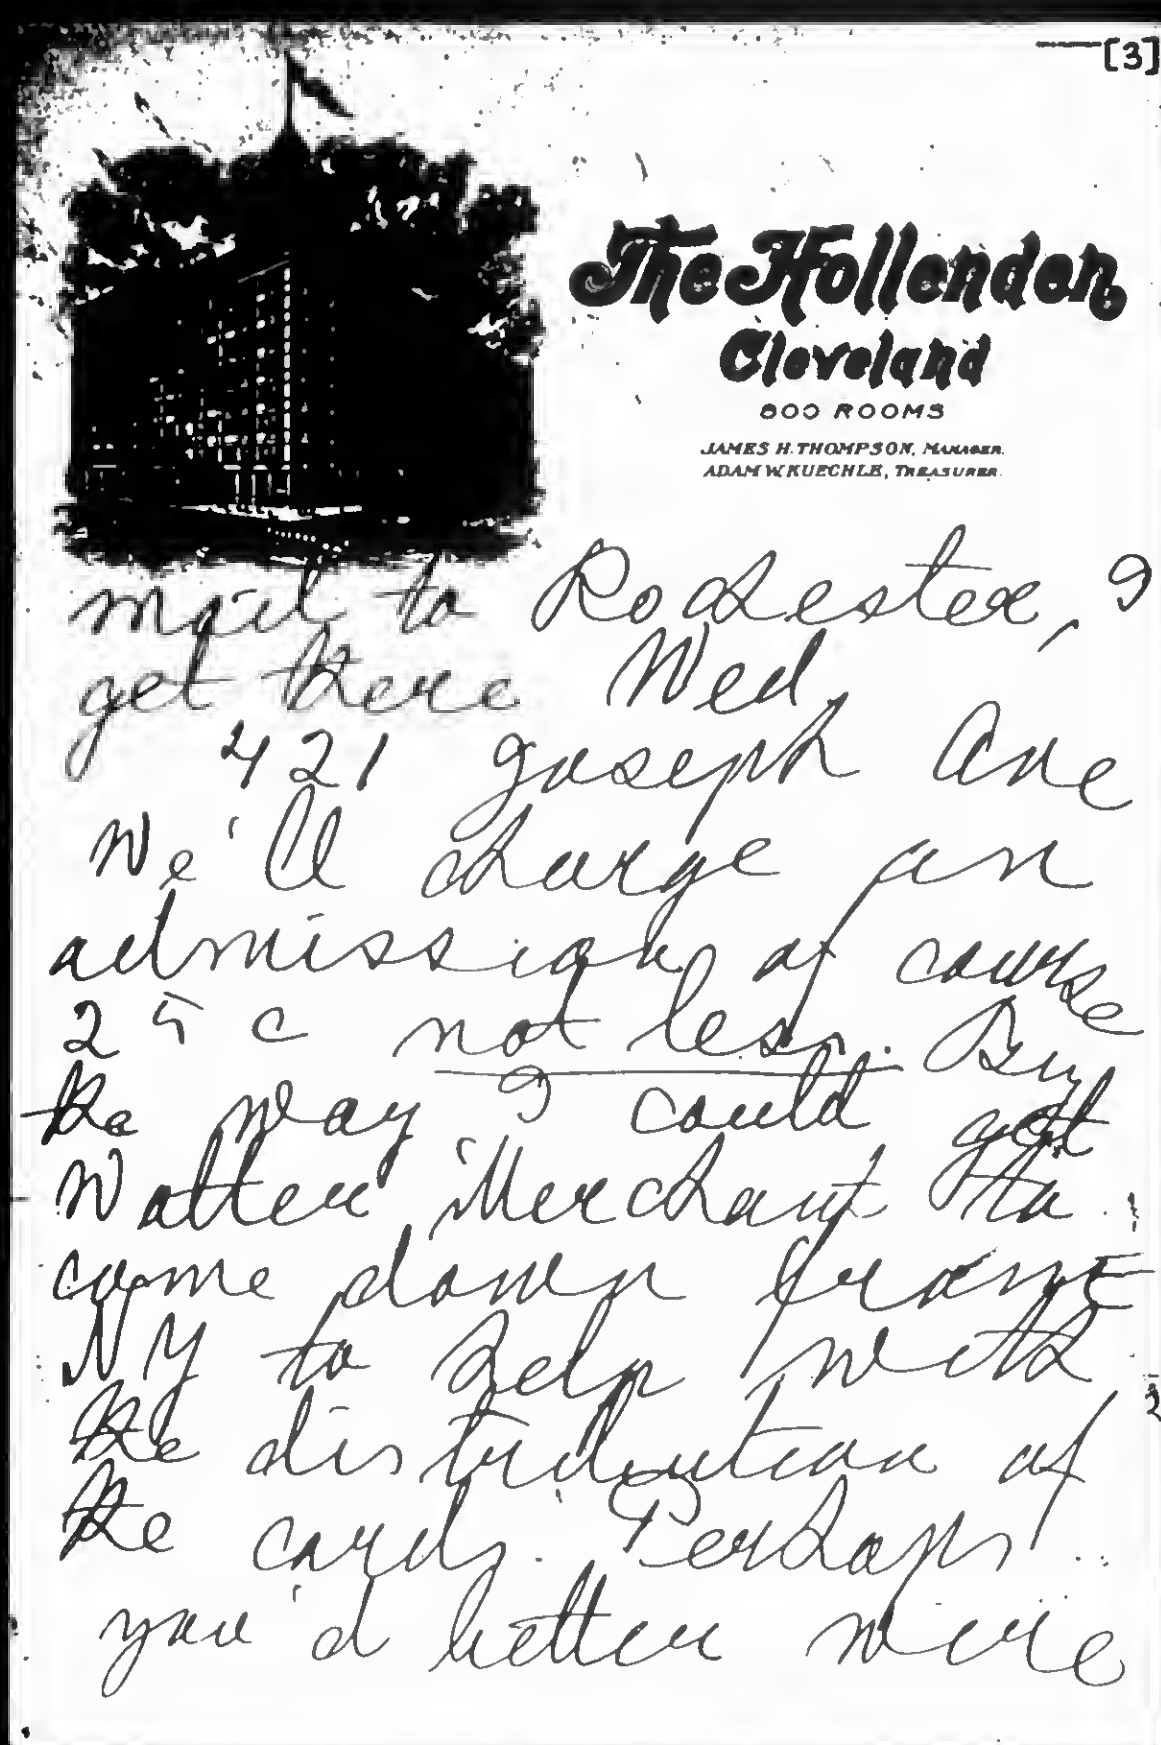 [3]
The Hollenden
Cleveland
800 ROOMS
JAMES H. THOMPSON, MANAGER.
ADAM W. KUECHLE, TREASURER.
mail to Rochester, I
get there Wed.
421 Joseph Ave
We'll charge an
admission of course
25c not less. By
the way I could get
Walter Merchant to
come down from
NY to help with
the distribution of
the cards. Perhaps
you'd better wire